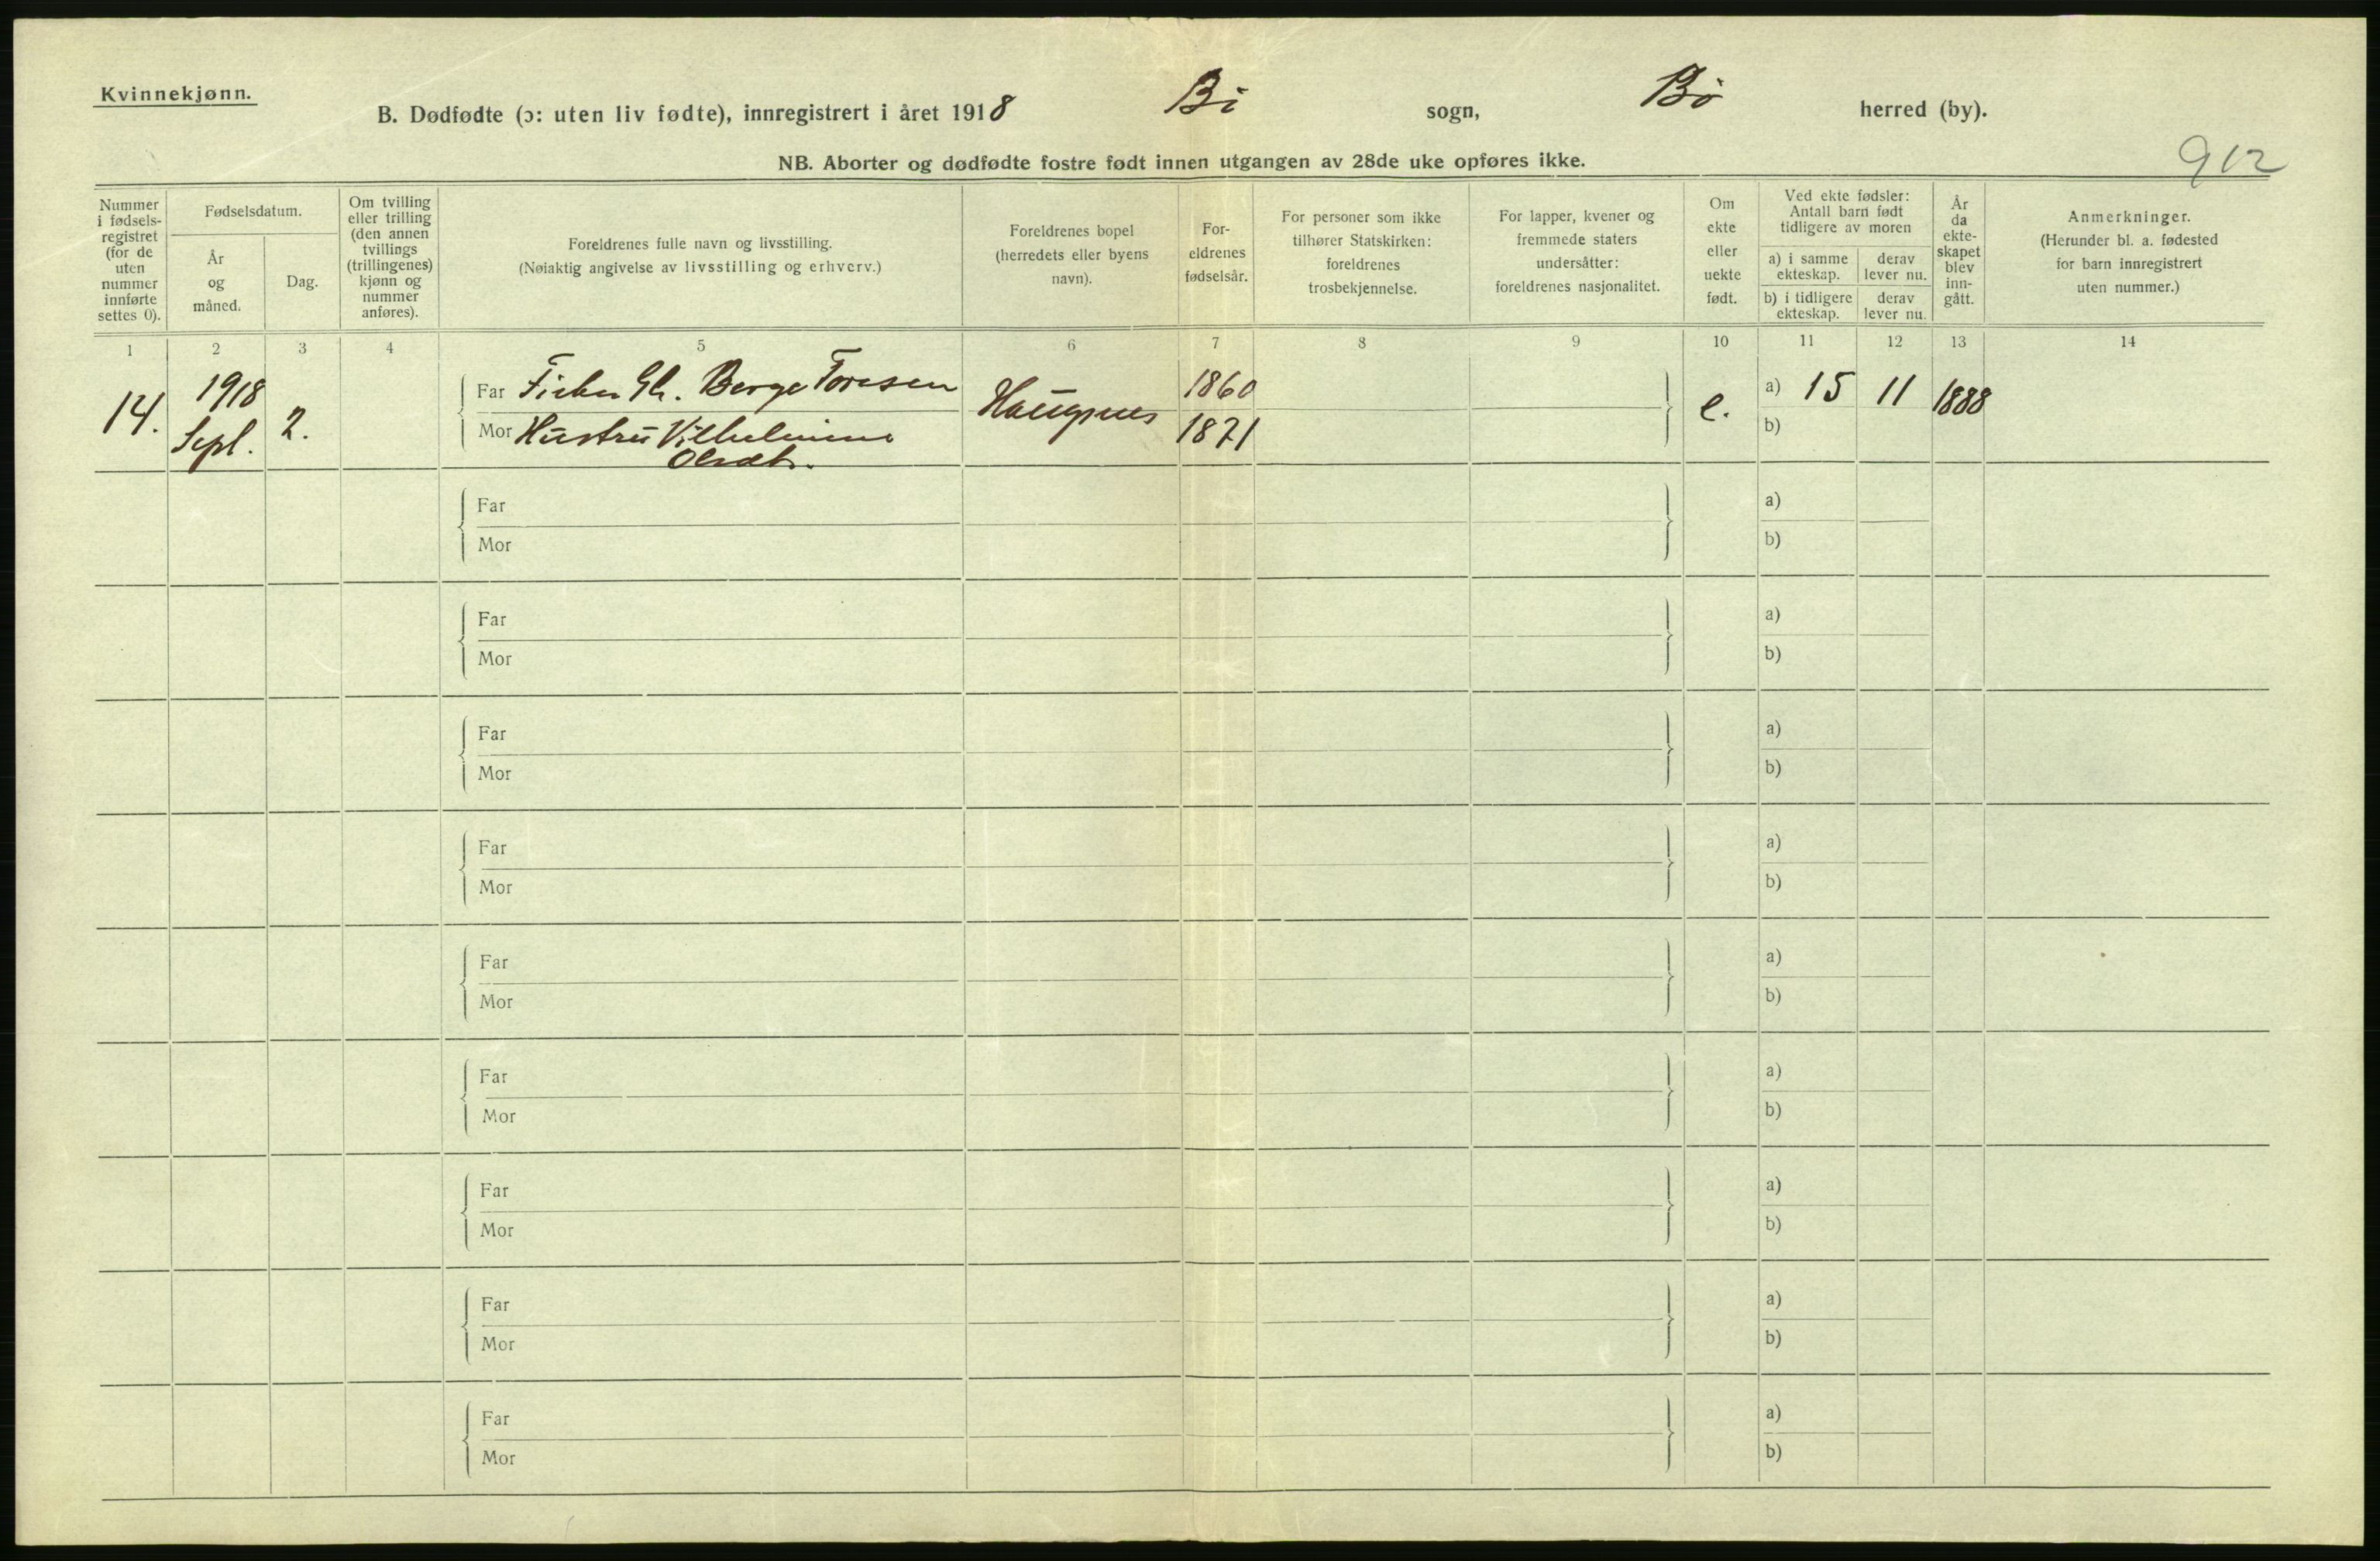 Kvinnekjønn.
B. Dødfødte (ɔ: uten liv fødte), innregistrert i året 1918 Bø sogn, Bø herred (by).
912
NB. Aborter og dødfødte fostre født innen utgangen av 28de uke opføres ikke.
Nummer
i fødsels-
registret
(for de
uten
nummer
innførte
settes 0).
Fødselsdatum.
År
og
måned.
Dag.
Om tvilling
eller trilling
(den annen
tvillings
(trillingenes)
kjønn og
nummer
anføres).
Foreldrenes fulle navn og livsstilling.
(Nøiaktig angivelse av livsstilling og erhverv.)
Foreldrenes bopel
(herredets eller byens
navn).
For-
eldrenes
fødselsår.
For personer som ikke
tilhører Statskirken:
foreldrenes
trosbekjennelse.
For lapper, kvener og
fremmede staters
undersåtter:
foreldrenes nasjonalitet.
Om
ekte
eller
uekte
født.
Ved ekte fødsler:
Antall barn født
tidligere av moren
a) i samme
ekteskap.
derav
lever nu.
b) i tidligere
ekteskap.
derav
lever nu.
År
da
ekte-
skapet
blev
inn-
gått.
Anmerkninger.
(Herunder bl. a. fødested
for barn innregistrert
uten nummer.)
1 2 3 4 5 6 7 8 9 10 11 12 13 14
14.
1918
Sept.
2.
Far Fisker Gb. Berge Toresen
Mor Hustru Vilhelmine
Olsdt.
Haugsnes
1860
1871
e.
a) 15 11 1888
b)
Far a)
Mor b)
Far a)
Mor b)
Far a)
Mor b)
Far a)
Mor b)
Far a)
Mor b)
Far a)
Mor b)
Far a)
Mor b)
Far a)
Mor b)
Far a)
Mor b)